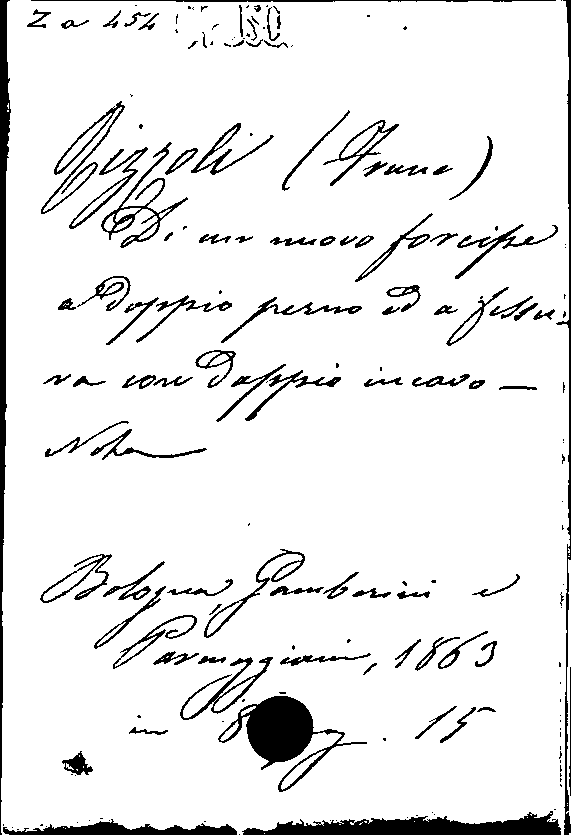 Za 454
Rizzoli (Franc)
Di un nuovo forcipe
a doppio perno ed a fessu-
ra con doppio incavo —
Nota
Bologna, Gamberini e
Parmeggiani, 1863
in 8 pag. 15